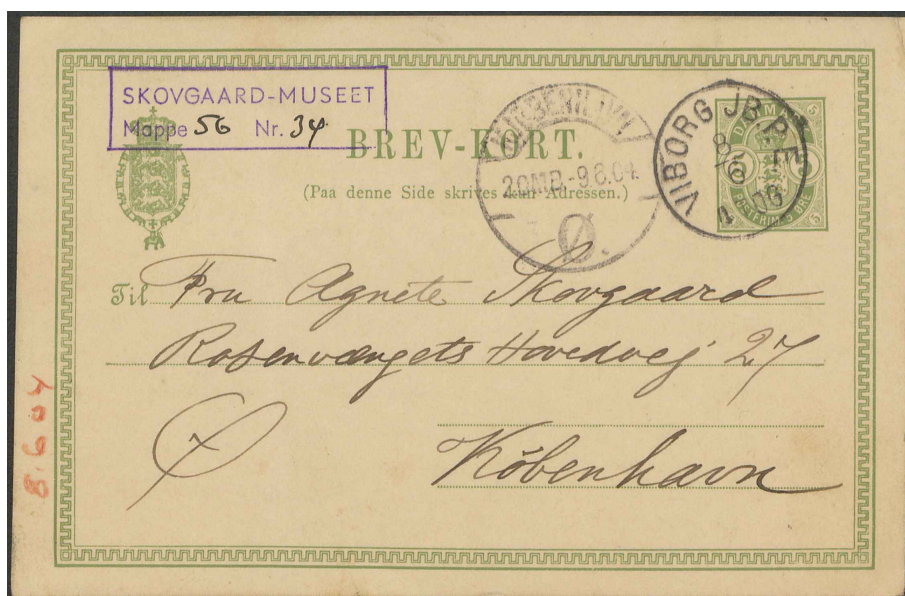 SKOVGAARD-MUSEET
Mappe 56 Nr. 34
BREV-KORT.
(Paa denne Side skrives kun Adressen.)
KJØBENHAVN
2.OMB.-9 6.04.
Ø.
VIBORG JB.P.E
8/6
DANMARK
5 5
POSTFRIM. 5 ØRE
Til Fru Agnete Skovgaard
Rosenvængets Hovedvej 27
Ø
København
8.6.04